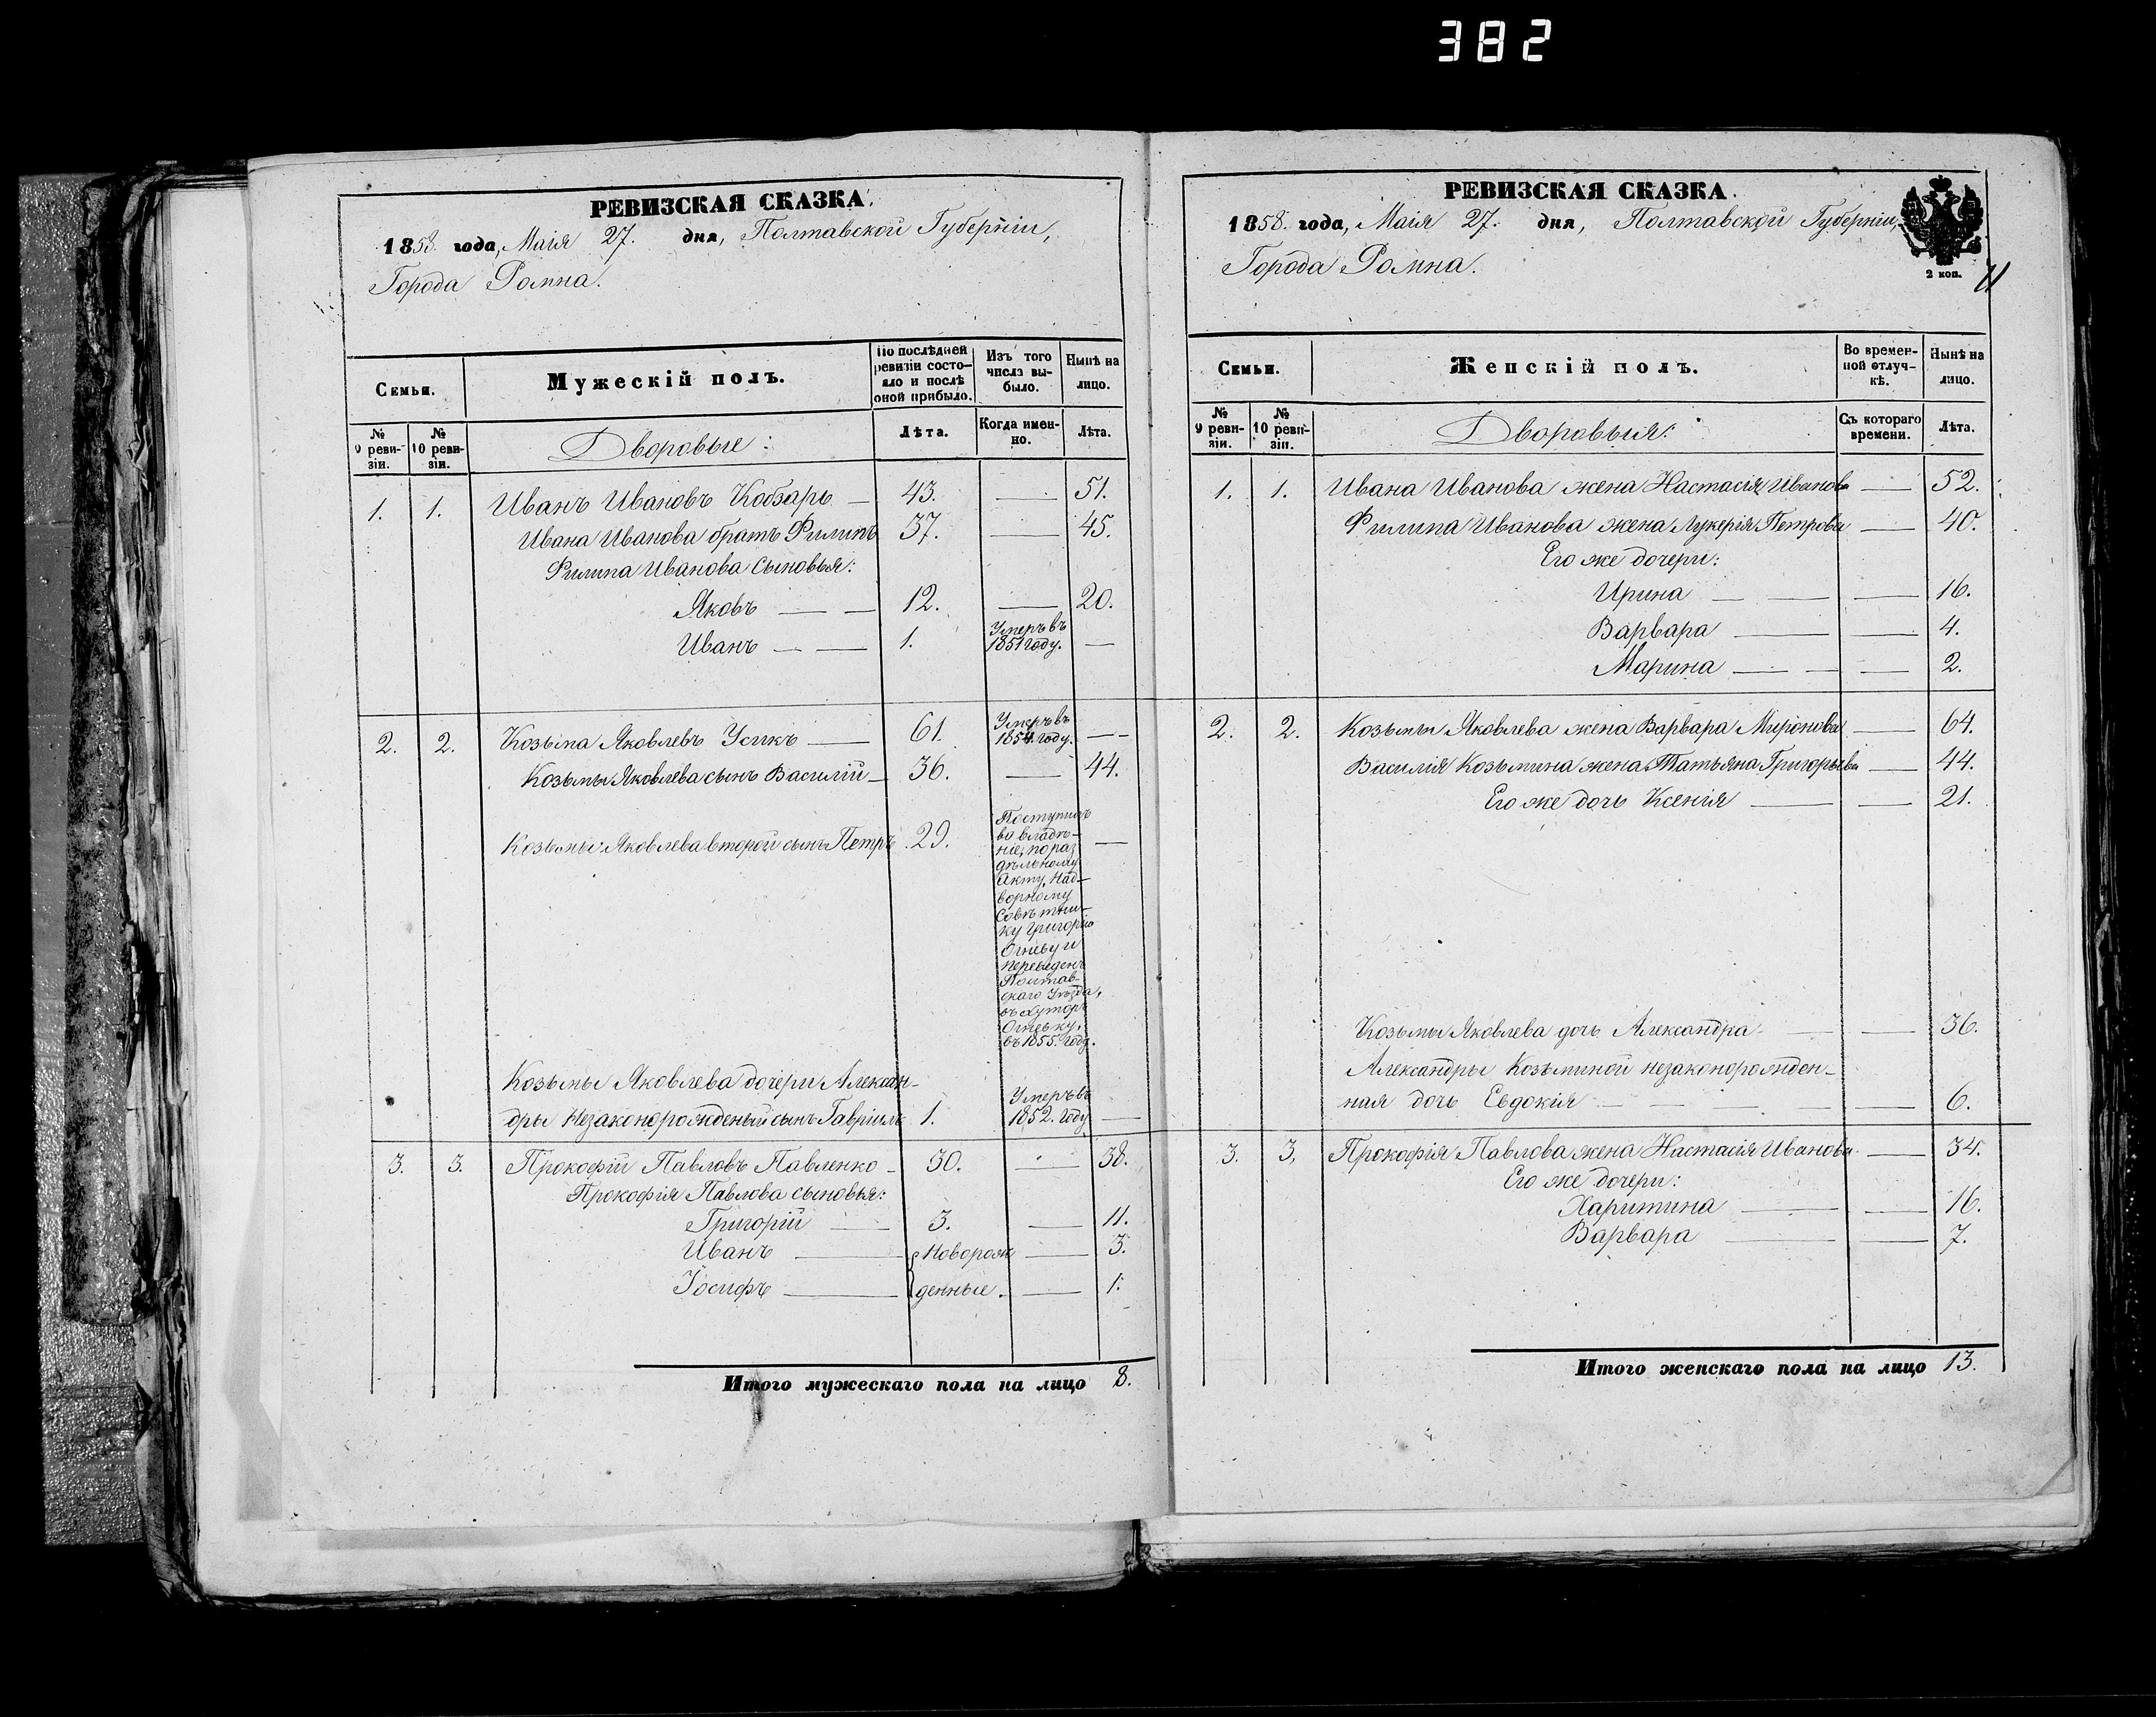 382
РЕВИЗСКАЯ СКАЗКА.
1858. года, Маія 27. дня, Полтавской Губерніи,
Города Ромна.
Семьи.
Мужескій полъ.
По послѣдней
ревизіи состо-
яло и послѣ
оной прибыло.
Изъ того
числа вы-
было.
Нынѣ на
лицо.
№
9 реви-
зіи.
№
10 реви-
зіи.
Дворовые:
Лѣта.
Когда имен-
но.
Лѣта.
1. 1. Иванъ Ивановъ Кобзарь — 43. — 51.
Ивана Иванова братъ Филипъ 37. — 45.
Филипа Иванова сыновья:
Яковъ — — 12. — 20.
Иванъ — — 1. Умеръ въ
1851 году. —
2. 2. Козьма Яковлевъ Усикъ — 61. Умеръ въ
1854. году. —
Козьмы Яковлева сынъ Василій — 36. — 44.
Козьмы Яковлева второй сынъ Петръ 29. —
Поступилъ
во владѣ-
ніе, по раз
дѣльному
акту, Над-
ворному
Совѣтни-
ку Григорію
Огневу и
переведенъ
Полтав-
скаго Уѣзда,
въ Хуторъ
Огневку,
въ 1855. году.
Козьмы Яковлева дочери Алексан-
дры незаконорожденый сынъ Гавріилъ 1. Умеръ въ
1852. году —
3. 3. Прокофій Павловъ Павленко — 30. — 38.
Прокофія Павлова сыновья:
Григорій — 3. — 11.
Иванъ — Новорож — 3.
Іосифъ — денные. — 1.
Итого мужескаго пола на лицо 8.
РЕВИЗСКАЯ СКАЗКА.
1858. года, Маія 27. дня, Полтавской Губерніи,
Города Ромна.
2 коп.
Семьи.
Женскій полъ.
Во времен-
ной отлуч-
кѣ.
Нынѣ на
лицо.
№
9 реви-
зіи.
№
10 реви-
зіи.
Дворовыя:
Съ котораго
времени.
Лѣта.
1. 1. Ивана Иванова жена Настасія Иванова — 52.
Филипа Иванова жена Лукерія Петрова — 40.
Его же дочери:
Ирина — — — 16.
Варвара — — 4.
Марина — — — 2.
2. 2. Козьмы Яковлева жена Варвара Миронова — 64.
Василія Козьмина жена Татьяна Григорьева — 44.
Его же дочь Ксенія — — 21.
Козьмы Яковлева дочь Александра — — 36.
Александры Козьминой незаконорожден-
ная дочь Евдокія — — — 6.
3. 3. Прокофія Павлова жена Настасія Иванова — 34.
Его же дочери:
Харитина — — 16.
Варвара — — 7.
Итого женскаго пола на лицо 13.